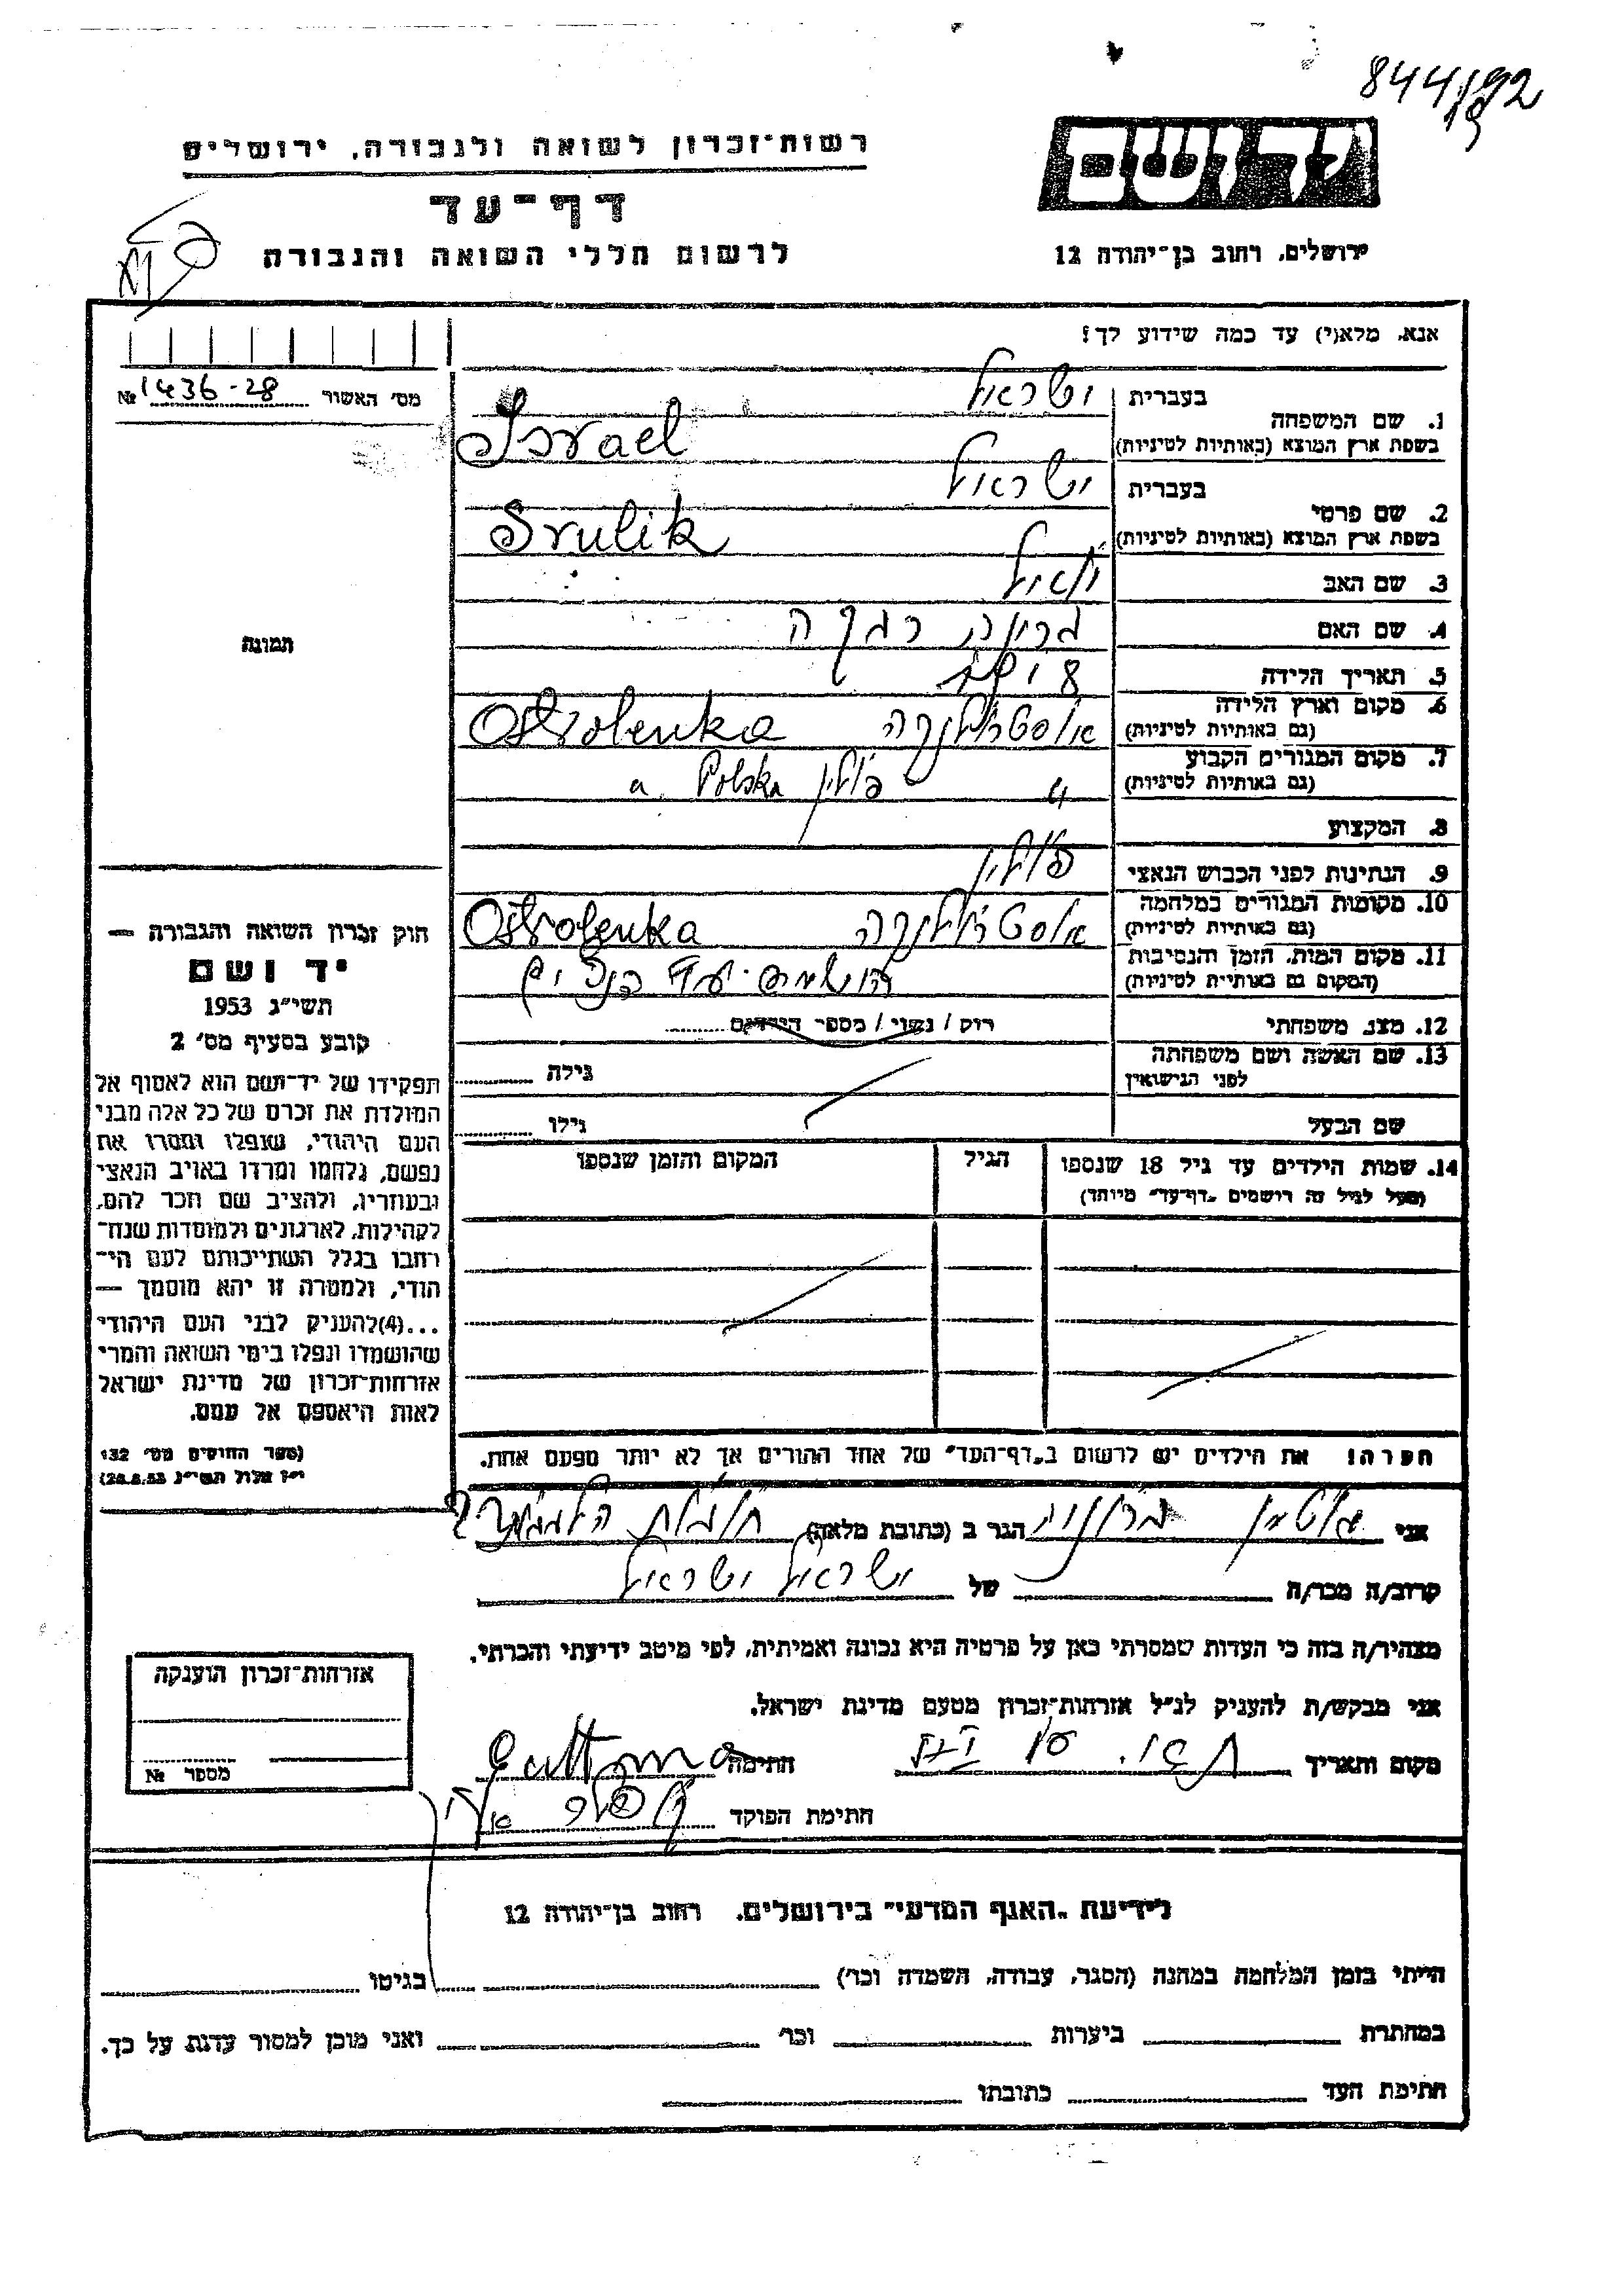 844/92
רשות־זכרון לשואה ולגבורה, ירושלים
יד ושם
דף־עד
לרשום חללי השואה והגבורה
ירושלים, רחוב בן־יהודה 12
אנא, מלא(י) עד כמה שידוע לך!
מס' האשור № 1436-28
1. שם המשפחה
בעברית ישראל
בשפת ארץ המוצא (באותיות לטיניות) Israel
2. שם פרטי
בעברית ישראל
בשפת ארץ המוצא (באותיות לטיניות) Srulik
3. שם האב
4. שם האם
תמונה
5. תאריך הלידה
6. מקום וארץ הלידה
(גם באותיות לטיניות) אוסטרולנקה Ostrolenka
7. מקום המגורים הקבוע
(גם באותיות לטיניות) " פולין Polska "
8. המקצוע
9. הנתינות לפני הכבוש הנאצי פולין
10. מקומות המגורים במלחמה
(גם באותיות לטיניות) אוסטרולנקה Ostrolenka
11. מקום המות, הזמן והנסיבות
(המקום גם באותיות לטיניות)
12. מצב משפחתי רוק / נשוי / מספר הילדים
13. שם האשה ושם משפחתה
לפני הנישואין גילה
שם הבעל גילו
14. שמות הילדים עד גיל 18 שנספו הגיל המקום והזמן שנספו
(מעל לגיל זה רושמים „דף־עד" מיוחד)
חוק זכרון השואה והגבורה —
יד ושם
תשי"ג 1953
קובע בסעיף מס' 2
תפקידו של יד־ושם הוא לאסוף אל
המולדת את זכרם של כל אלה מבני
העם היהודי, שנפלו ומסרו את
נפשם, נלחמו ומרדו באויב הנאצי
ובעוזריו, ולהציב שם וזכר להם,
לקהילות, לארגונים ולמוסדות שנח־
רבו בגלל השתייכותם לעם הי־
הודי, ולמטרה זו יהא מוסמך —
...(4) להעניק לבני העם היהודי
שהושמדו ונפלו בימי השואה והמרי
אזרחות־זכרון של מדינת ישראל
לאות היאספם אל עמם.
(ספר החוקים מס' 132
י"ז אלול תשי"ג 28.8.53)
הערה! את הילדים יש לרשום ב„דף־העד" של אחד ההורים אך לא יותר מפעם אחת.
אני הגר ב (כתובת מלאה)
קרוב/ה מכר/ה של ישראל ישראל
מצהיר/ה בזה כי העדות שמסרתי כאן על פרטיה היא נכונה ואמיתית, לפי מיטב ידיעתי והכרתי.
אני מבקש/ת להעניק לנ"ל אזרחות־זכרון מטעם מדינת ישראל.
מקום ותאריך חתימה
חתימת הפוקד
אזרחות־זכרון הוענקה
מספר №
לידיעת „האגף המדעי" בירושלים, רחוב בן־יהודה 12
הייתי בזמן המלחמה במחנה (הסגר, עבודה, השמדה וכו') בגיטו
במחתרת ביערות וכו' ואני מוכן למסור עדות על כך.
חתימת העד כתובתו